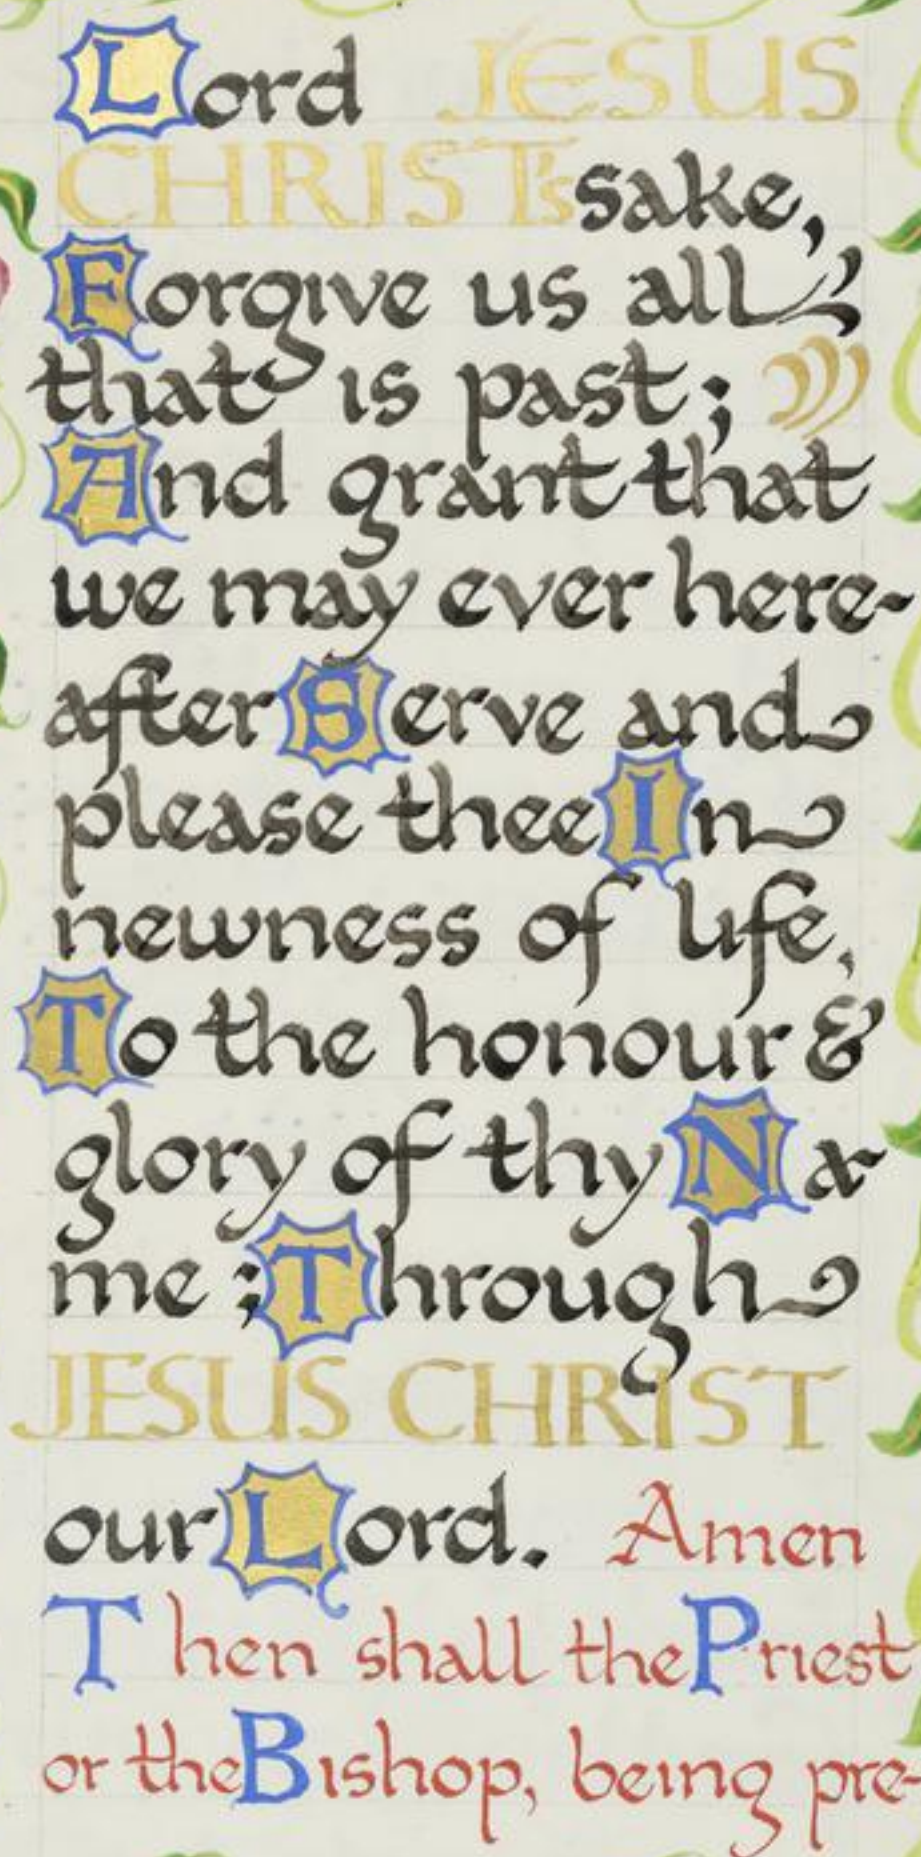 Lord JESUS
CHRIST's sake,
Forgive us all
that is past;
And grant that
we may ever here-
after Serve and
please thee In
newness of life,
To the honour &
glory of thy Na-
me; Through
JESUS CHRIST
our Lord. Amen
Then shall the Priest
or the Bishop, being pre-